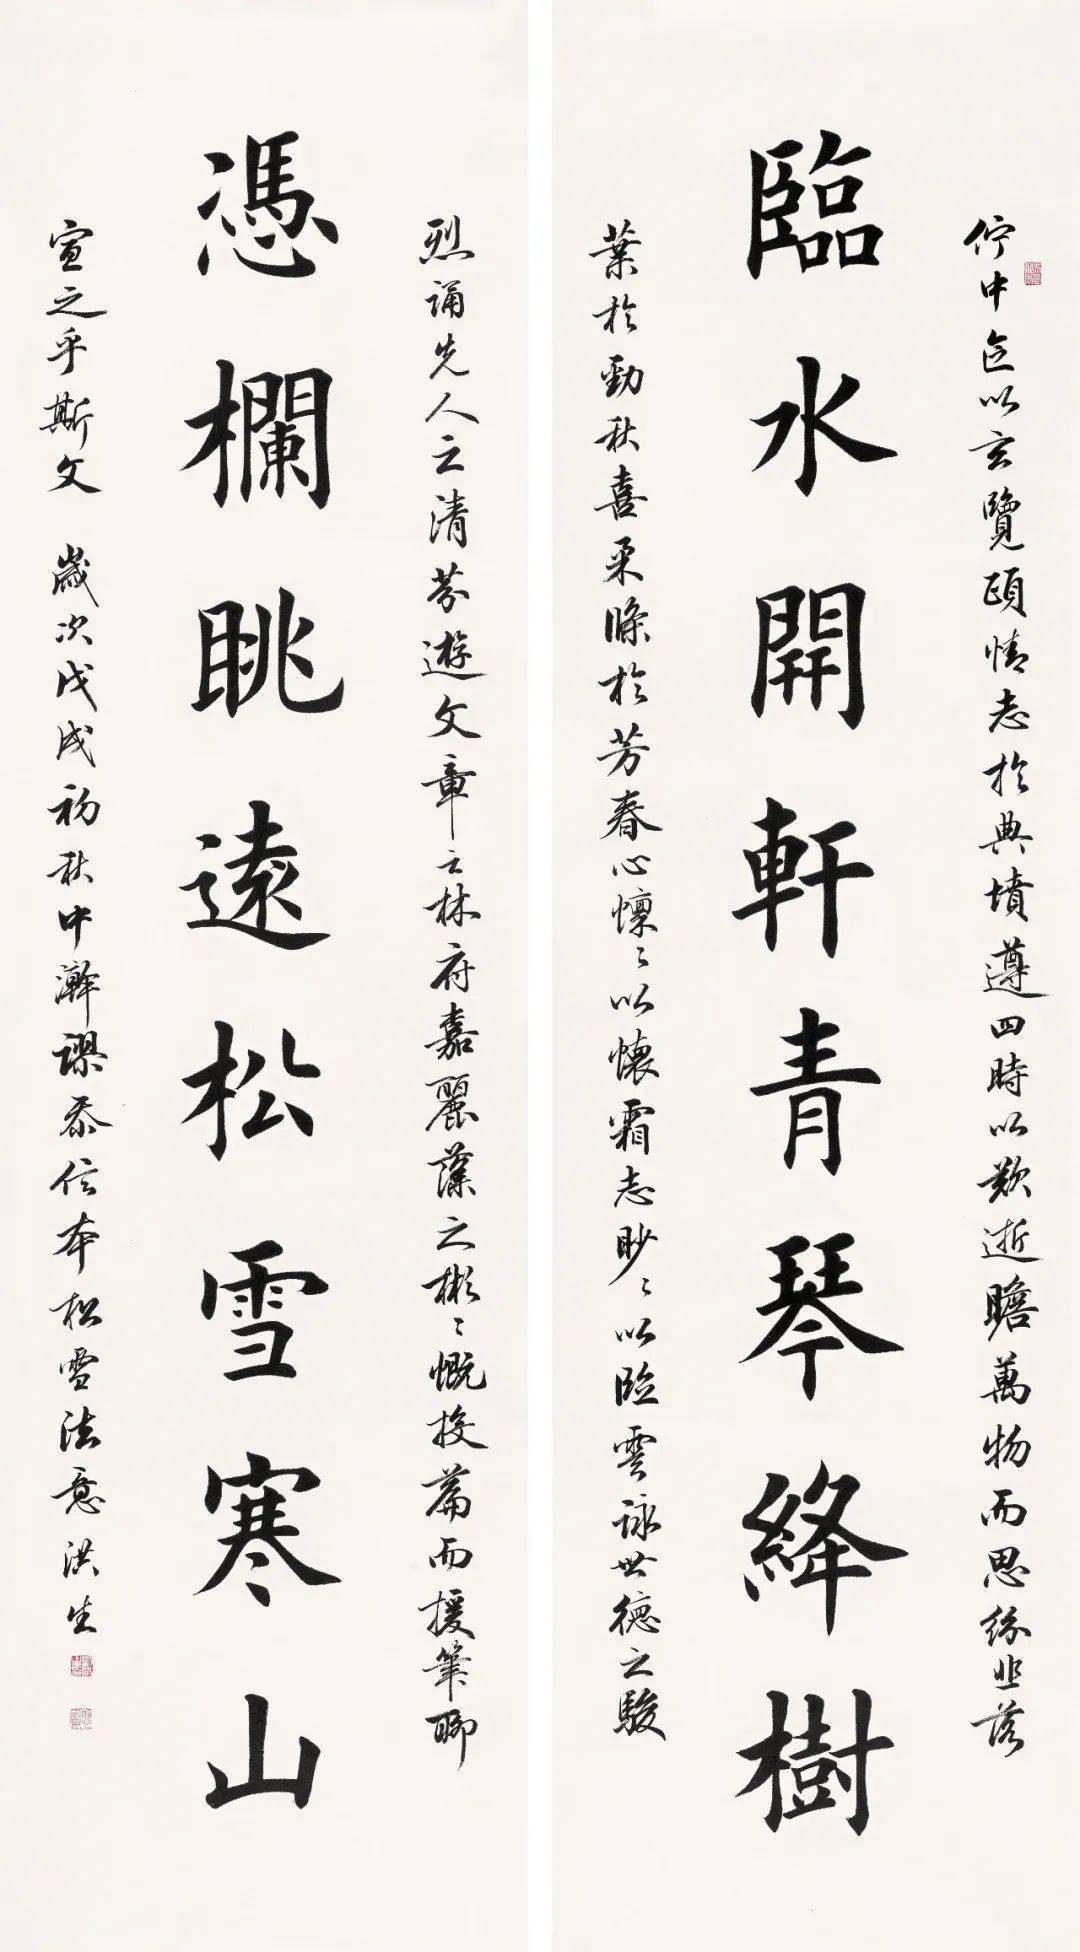 佇中區以玄覽頤情志於典墳遵四時以歎逝瞻萬物而思紛悲落
臨水開軒青琴絳樹
葉於勁秋喜柔條於芳春心懍〻以懷霜志眇〻以臨雲詠世德之駿
烈誦先人之清芬遊文章之林府嘉麗藻之彬〻慨投篇而援筆聊
憑欄眺遠松雪寒山
宣之乎斯文 歲次戊戌初秋中澣謬忝信本松雪法意洪生